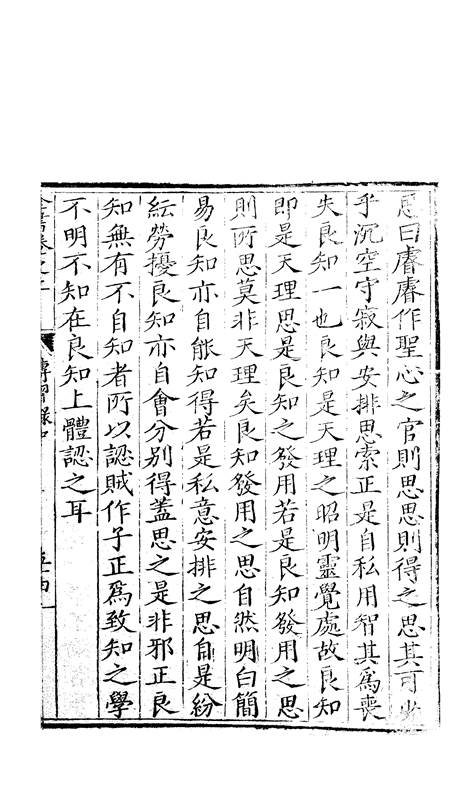 思曰睿睿作聖心之官則思思則得之思其可少
乎沉空守寂與安排思索正是自私用智其為喪
失良知一也良知是天理之昭明靈覺處故良知
即是天理思是良知之發用若是良知發用之思
則所思莫非天理矣良知發用之思自然明白簡
易良知亦自能知得若是私意安排之思自是紛
紜勞擾良知亦自會分别得蓋思之是非邪正良
知無有不自知者所以認賊作子正為致知之學
不明不知在良知上體認之耳
全書卷之二
傳習録中